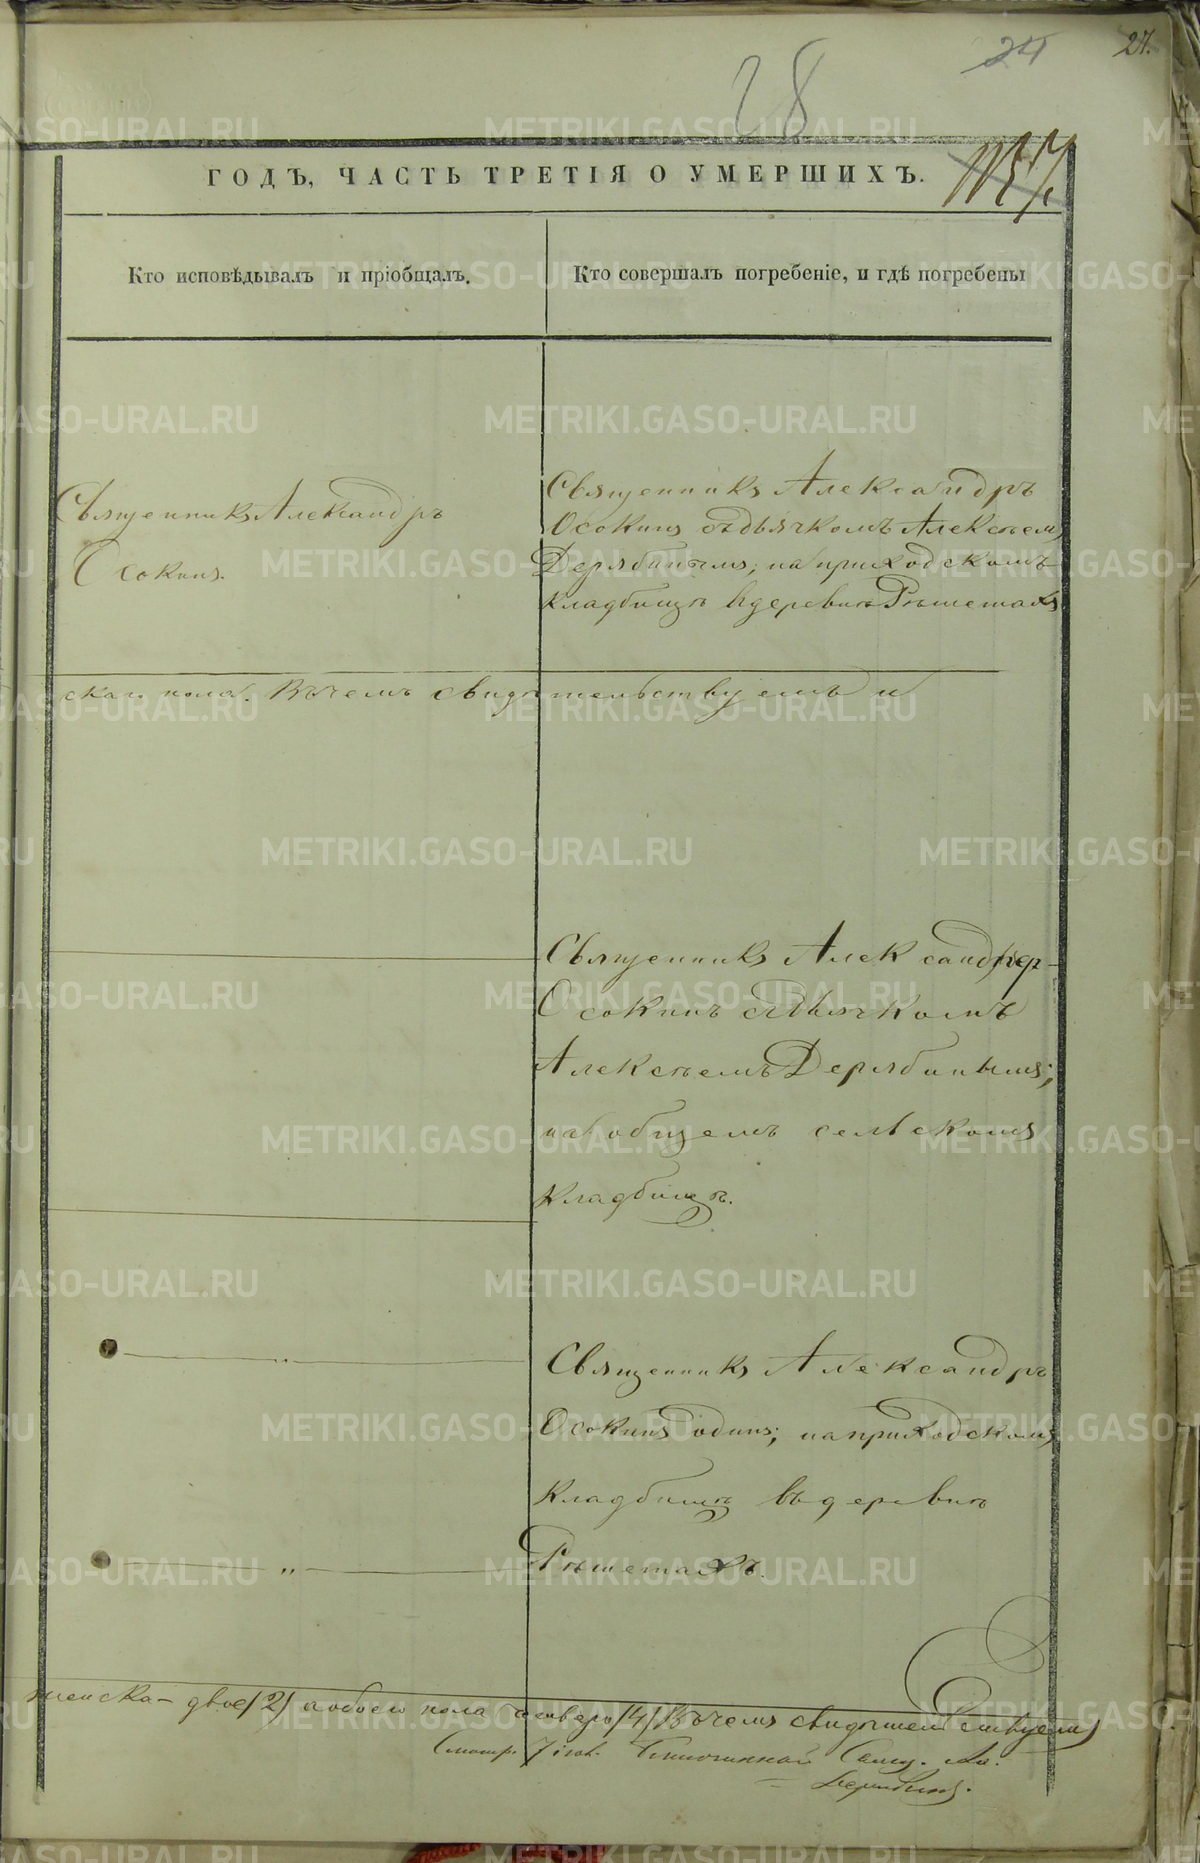 28 24 27.
ГОДЪ, ЧАСТЬ ТРЕТІЯ О УМЕРШИХЪ.
Кто исповѣдывалъ и пріобщалъ.
Кто совершалъ погребеніе, и гдѣ погребены
Священникъ Александръ
Осокинъ.
Священникъ Александръ
Осокинъ съ дьячкомъ Алексѣемъ
Дерябинымъ; на приходскомъ
кладбищѣ въ деревнѣ Рѣшетахъ
скаго пола. Въ чемъ свидѣтельствуемъ и
Священникъ Александръ
Осокинъ съ дьячкомъ
Алексѣемъ Дерябинымъ;
на общемъ сельскомъ
кладбищѣ.
Священникъ Александръ
Осокинъ одинъ; на приходскомъ
кладбищѣ въ деревнѣ
Рѣшетахъ.
женска - двое /2/ а обоего пола четверо /4/ Въ чемъ свидѣтельствуемъ
Смотр. 7 Благочинный
METRIKI.GASO-URAL.RU